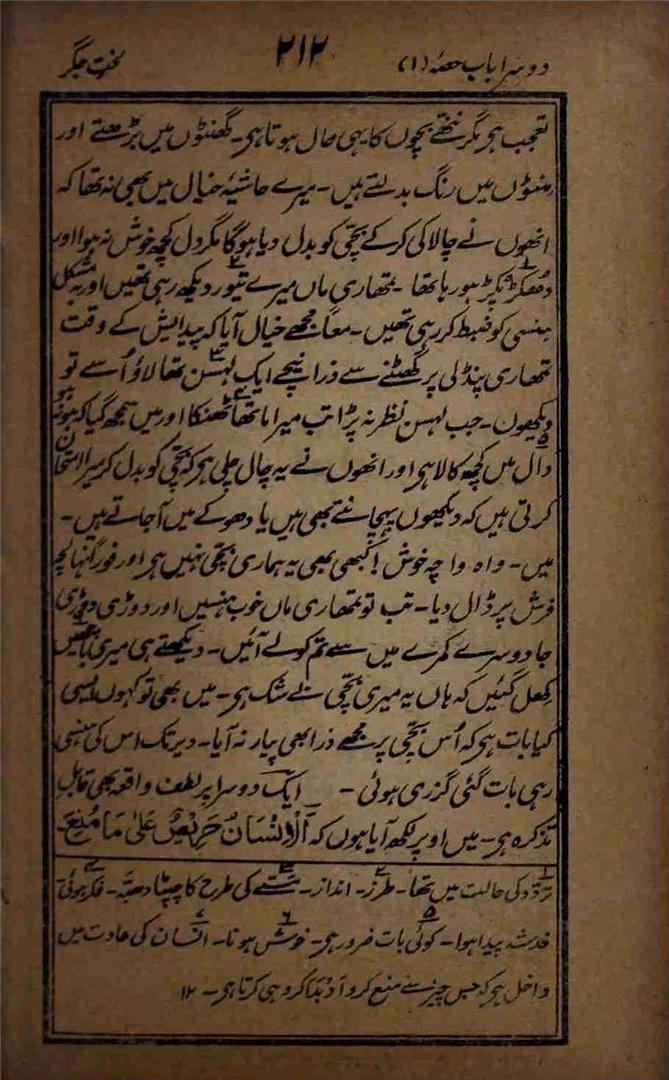 دوسرا باب حصہ (۱) ۲۱۲ لخت جگر
تعجب ہی مگر ننھے بچوں کا یہی حال ہوتا ہی۔ گھنٹوں میں بڑھتے اور
منٹوں میں رنگ بدلتے ہیں۔ میرے حاشیۂ خیال میں بھی نہ تھا کہ
انھوں نے چالاکی کرکے بچّی کو بدل دیا ہوگا مگر دل کچھ خوش نہ ہوا اور
دھکڑ پکڑ ہو رہا تھا۔ تمھاری ماں میرے تیور دیکھ رہی تھیں اور بہ مشکل
ہنسی کو ضبط کر رہی تھیں۔ معاً مجھے خیال آیا کہ پیدایش کے وقت
تمھاری پنڈلی پر گھٹنے سے ذرا نیچے ایک لہسن تھا لاؤ اُسے تو
دیکھوں۔ جب لہسن نظر نہ پڑا تب میرا ماتھا ٹھنکا اور میں سمجھ گیا کہ ہو نہ ہو
دال میں کچھ کالا ہی اور انھوں نے یہ چال چلی ہی کہ بچّی کو بدل کر میرا امتحان
کرتی ہیں کہ دیکھوں پہچانتے بھی ہیں یا دھوکے میں آجاتے ہیں۔
میں۔ واہ وا چہ خوش! کبھی بھی یہ ہماری بچّی نہیں ہی اور فوراً نہالچہ
فرش پر ڈال دیا۔ تب تو تمھاری ماں خوب ہنسیں اور دوڑی دوڑی
جا دوسرے کمرے میں سے تم کو لے آئیں۔ دیکھتے ہی میری باچھیں
کھل گئیں کہ ہاں یہ میری بچّی بے شک ہی۔ میں بھی تو کہوں ایسی
کیا بات ہی کہ اُس بچّی پر مجھے ذرا بھی پیار نہ آیا۔ دیر تک اس کی ہنسی
رہی بات گئی گزری ہوئی۔ ایک دوسرا پر لطف واقعہ بھی قابلِ
تذکرہ ہی۔ میں اوپر لکھ آیا ہوں کہ اَلْاِنْسَانُ حَرِیْصٌ عَلیٰ مَا مُنِعَ۔
۱ تردّد کی حالت میں تھا۔ ۲ طرز۔ انداز۔ ۳ مَسّے کی طرح کا چپٹا دھبّہ۔ ۴ فکر ہوئی
خدشہ پیدا ہوا۔ ۵ کوئی بات ضرور ہی۔ ۶ خوش ہونا۔ ۷ انسان کی عادت میں
داخل ہی کہ جس چیز سے منع کرو اَدبَدا کر وہی کرتا ہی۔ ۱۲